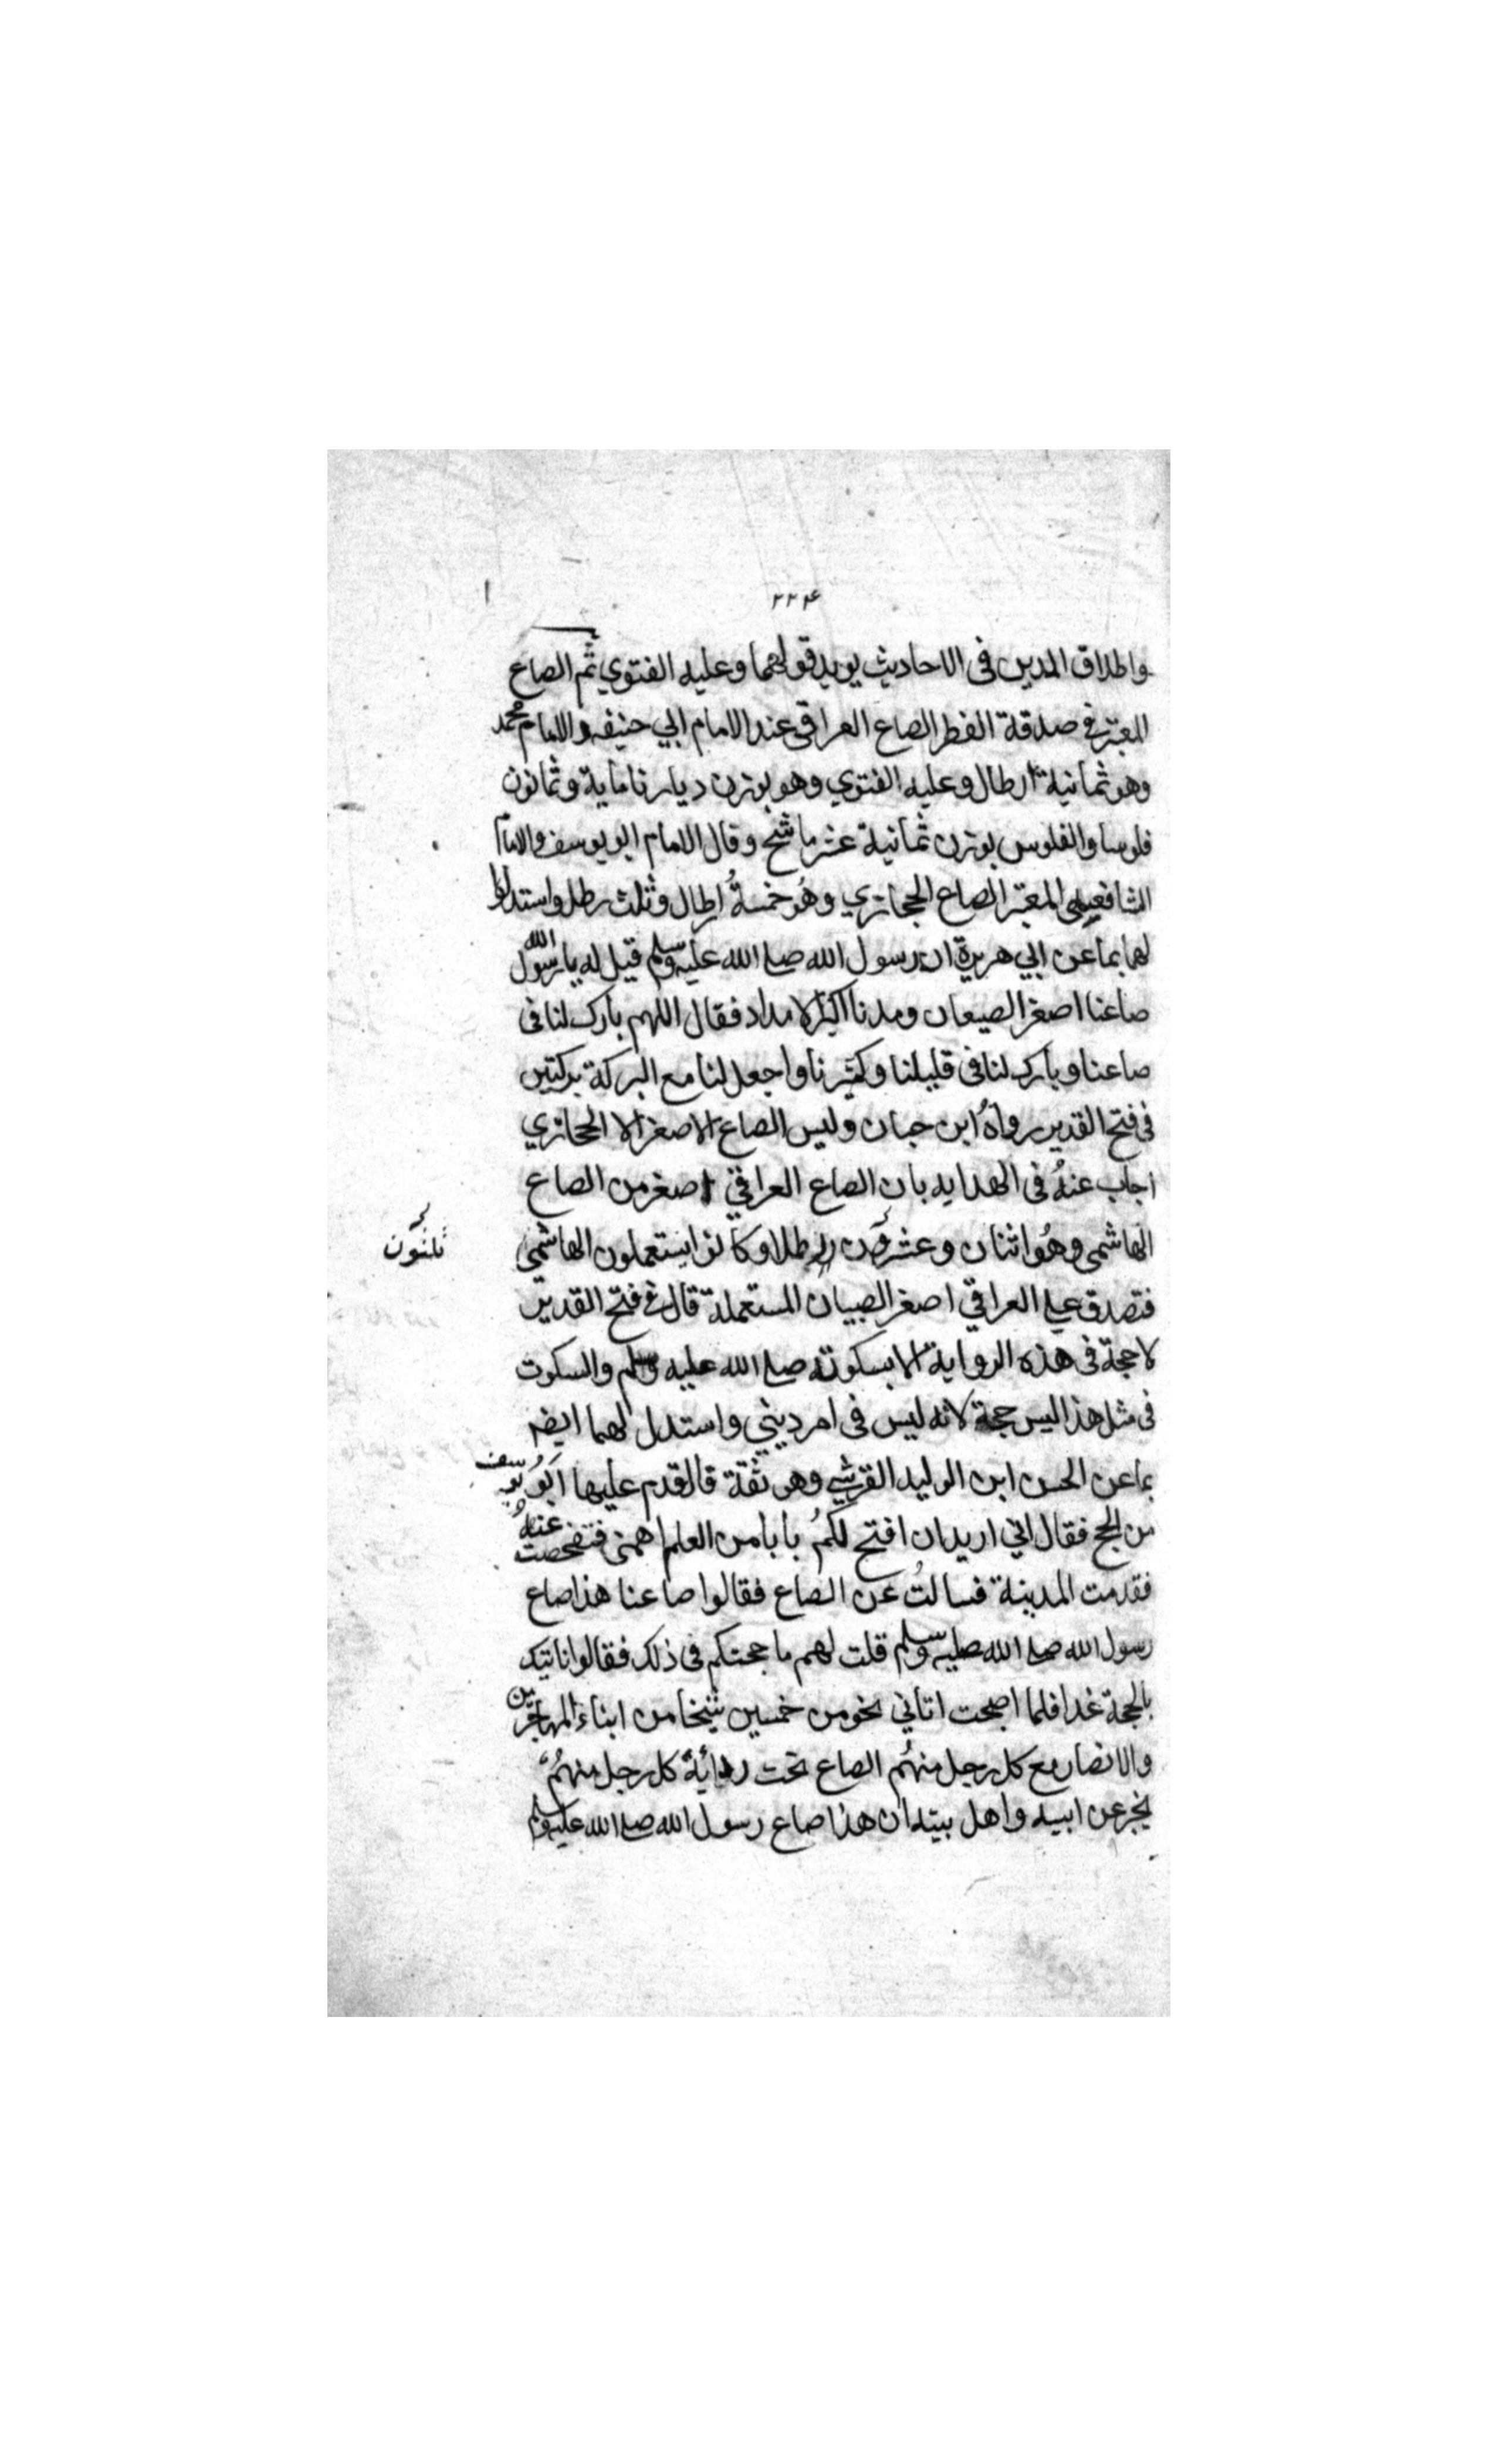 ٢٢٤
واطلاق المدين فى الاحاديث يويد قولهما وعليه الفتوي ثم الصاع
المعتبر فى صدقة الفطر الصاع العراقى عند الامام ابي حنيفه والامام محمد
وهو ثمانية ارطال وعليه الفتوي وهو بوزن ديارنا ماية وثمانون
فلوسا والفلوس بوزن ثمانية عشر ماشج وقال الامام ابو يوسف والامام
الشافعي المعتبر الصاع الحجازي وهُو خمسةُ ارطال وثلث رطل واستدلوا
لهما بما عن ابي هريرة ان رسول الله صلى الله عليه وسلم قيل له يا رسول الله
صاعنا اصغر الصيعان ومدنا اكبر الامداد فقال اللهم بارك لنا فى
صاعنا وبارك لنا فى قليلنا وكثيرنا واجعل لنا مع البركة بركتين
فى فتح القدير رواهُ ابن حبان وليس الصاع الاصغر الا الحجازي
اجاب عنهُ فى الهدايه بان الصاع العراقي اصغر من الصاع
الهاشمى وهُو اثنان وعشرون رطلا وكانوا يستعملون الهاشمى
ثلثون
فتصدق على العراقي اصغر الصيبان المستعملة قال فى فتح القدير
لا حجة فى هذه الرواية الا بسكوته صلى الله عليه وسلم والسكوت
فى مثل هذا ليس حجة لانه ليس فى امر ديني واستدل لهما ايضه
بما عن الحسن ابن الوليد القرشي وهو ثقة قال قدم عليها ابُو يوسف
من الحج فقال اني اريد ان افتح لكمُ بابا من العلم اهمنى فتفحصت عنهُ
فقدمت المدينة فسالتُ عن الصاع فقالوا صاعنا هذا صاع
رسول الله صلى الله عليه وسلم قلت لهم ما حجتكم فى ذلك فقالوا ناتيك
بالحجة غدا فلما اصبحت اتاني نحو من خمسين شيخا من ابناء المهاجرين
والانصار مع كل رجل منهُم الصاع تحت ردائهِ كل رجل منهُم
يخبر عن ابيه واهل بيته ان هذا صاع رسول الله صلى الله عليه وسلم